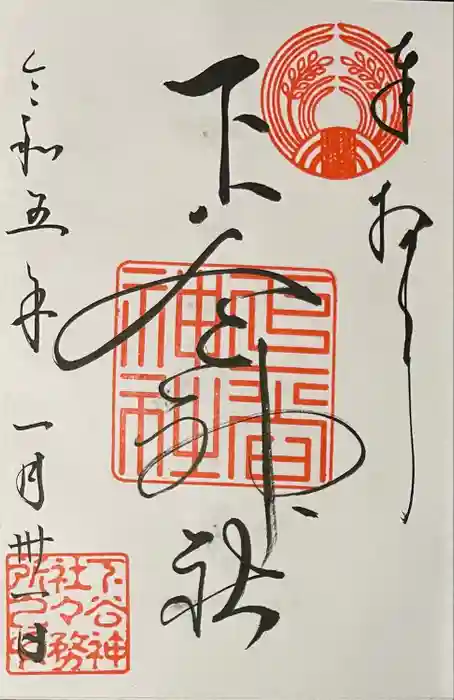 奉拝
下谷神社
下谷神社
令和五年一月卅一日
下谷神
社々務
所之印